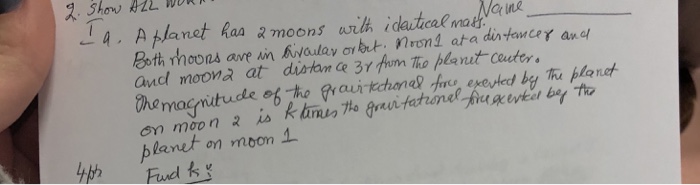 Name
2. Show ALL WORK
I a. A planet has 2 moons with identical mass.
Both moons are in circular orbit. Moon 1 at a distance r and
and moon 2 at distance 3r from the planet center.
The magnitude of the gravitational force exerted by the planet
on moon 2 is k times the gravitational force exerted by the
planet on moon 1
4pts Find k: